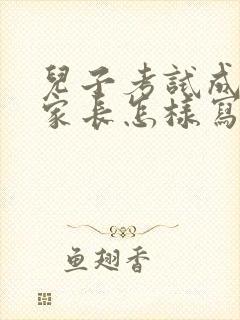 兒子考試成
家長怎樣寫
鱼翅香